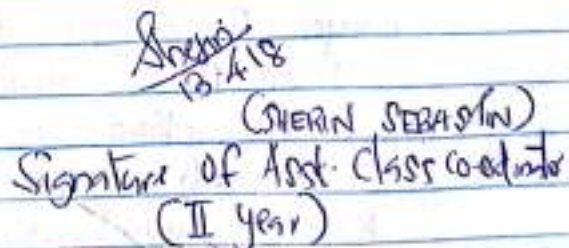 Sherin
13.4.18
(SHERIN SEBASTIN)
Signature of Asst. Class co-ordinator
(II year)